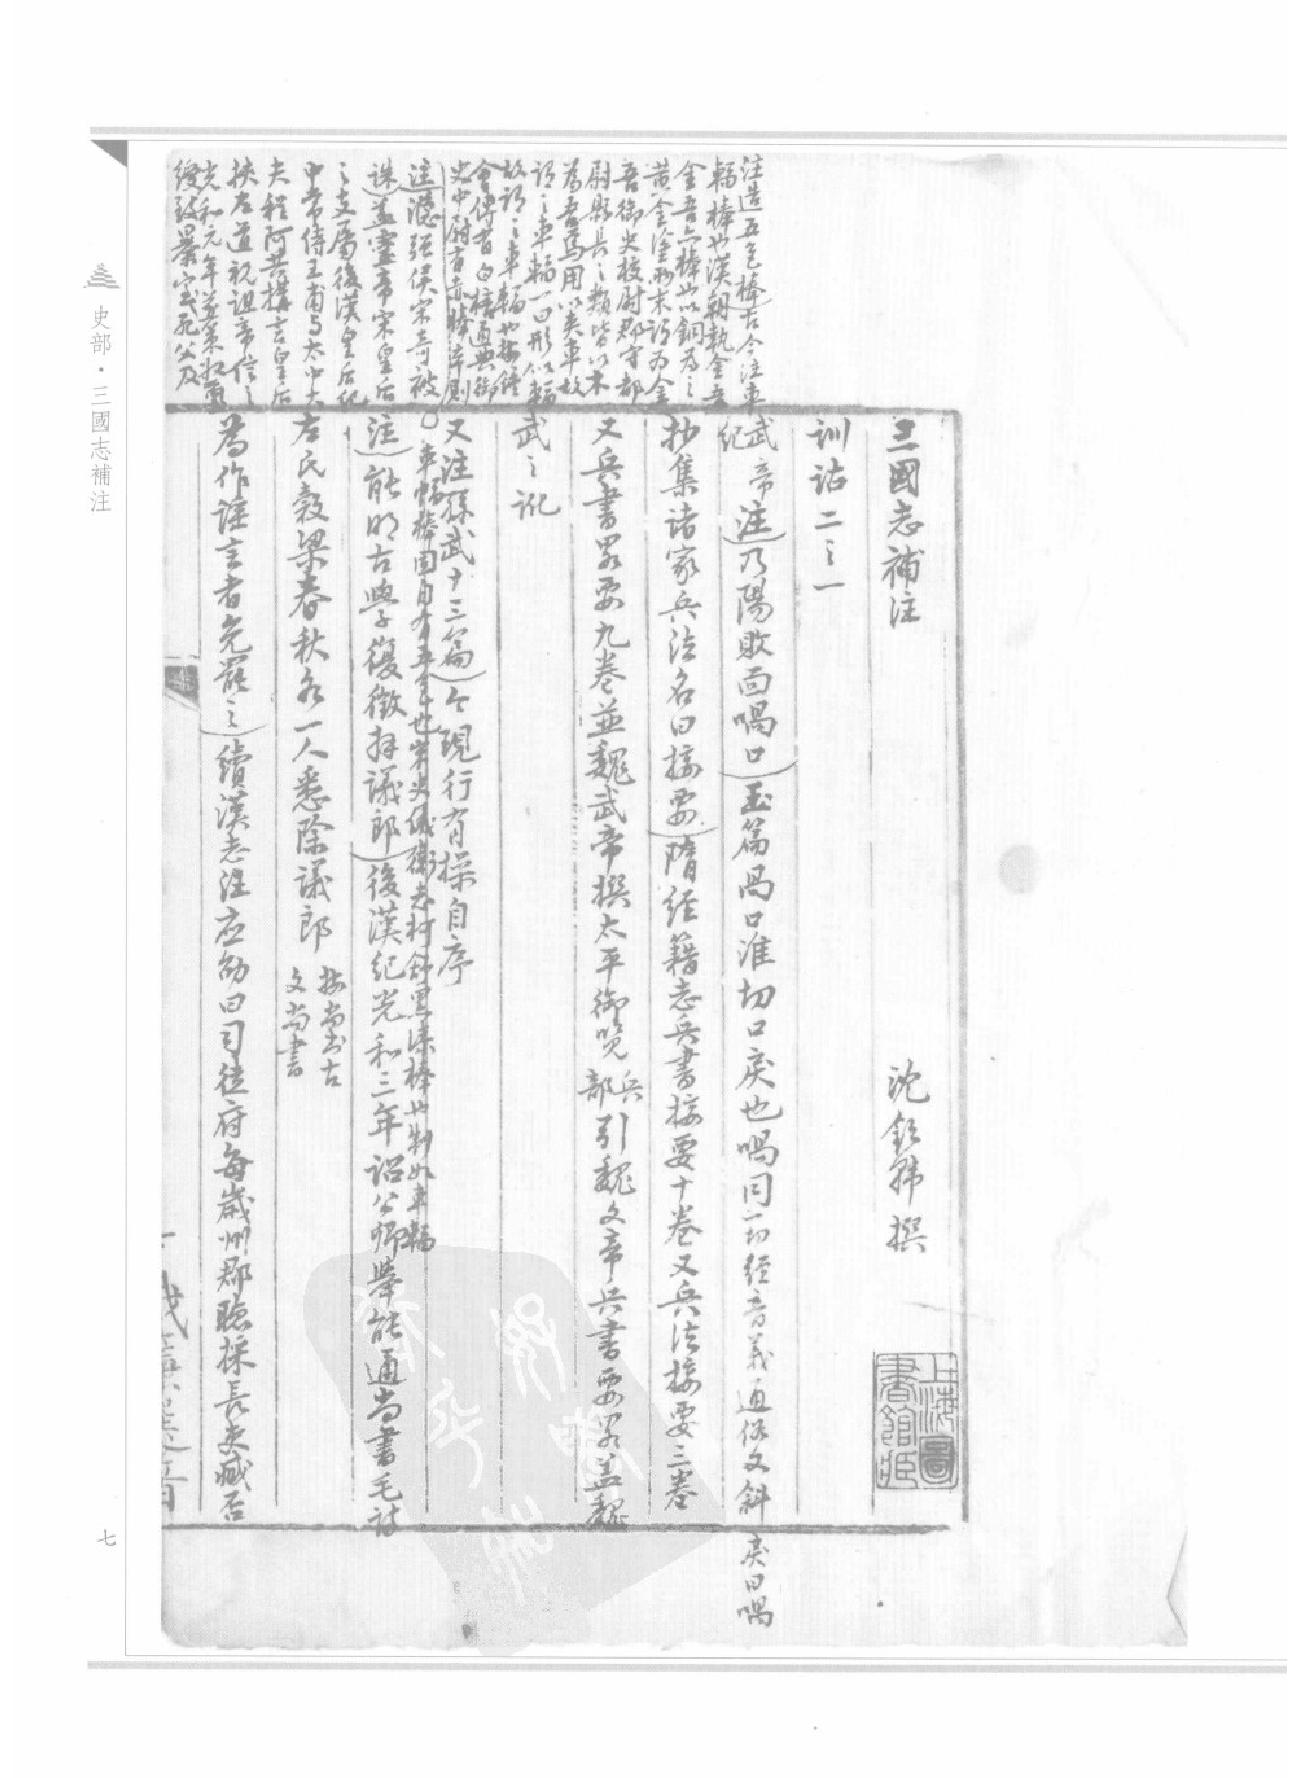 三國志補注
沈欽韓撰
訓詁二之一
武帝紀
注乃陽敗面喎口玉篇咼口淮切口戾也喎同一切經音義通俗文斜戾曰喎
抄集諸家兵法名曰接要隋經籍志兵書接要十卷又兵法接要三卷
又兵書畧要九卷並魏武帝撰太平御覽兵部引魏文帝兵書要畧蓋魏
武之訛
又注孫武十三篇今現行有操自序
車輻棒固自有五色也宋史儀衛志柯舒黑漆棒也制如車輻
注能明古學復徵拜議郎後漢紀光和三年詔公卿舉能通尚書毛詩
左氏穀梁春秋各一人悉除議郎
按尚書古
文尚書
為作謠言者免罷之續漢志注應劭曰司徒府每歲州郡聽採長吏臧否
注造五色棒古今注車
輻棒也漢朝執金吾
金吾亦棒也以銅為之
黃金塗兩末謂為金
吾御史校尉郡守都
尉縣長之類皆以木
為吾焉用以夾車故
謂之車輻一曰形似輻
故謂之車輻也按
會傳者白棓通典御
史中尉有赤棒率則
注㶟彊侯宋奇被
誅蓋靈帝宋皇后
之支屬後漢皇后紀
中常侍王甫與太中大
夫程阿共構言皇后
挾左道祝詛帝信之
光和元年遂策收璽
綬致暴室死父及
上海圖書館藏
史部·三國志補注
七